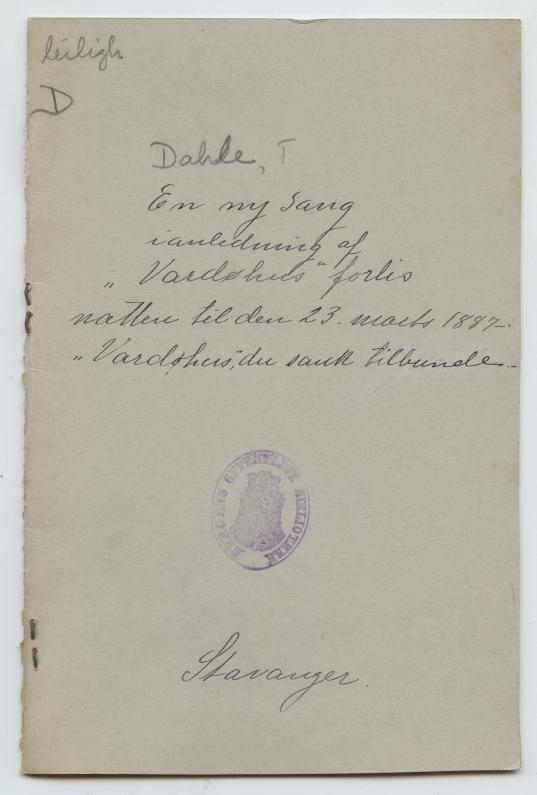 leiligh.
D
Dahle, T
En ny Sang
ianledning af
„Vardøhus" forlis
natten til den 23. marts 1887.
„Vardøhus", du sank tilbunde.
BERGENS OFFENTLIGE BIBLIOTHEK
Stavanger.